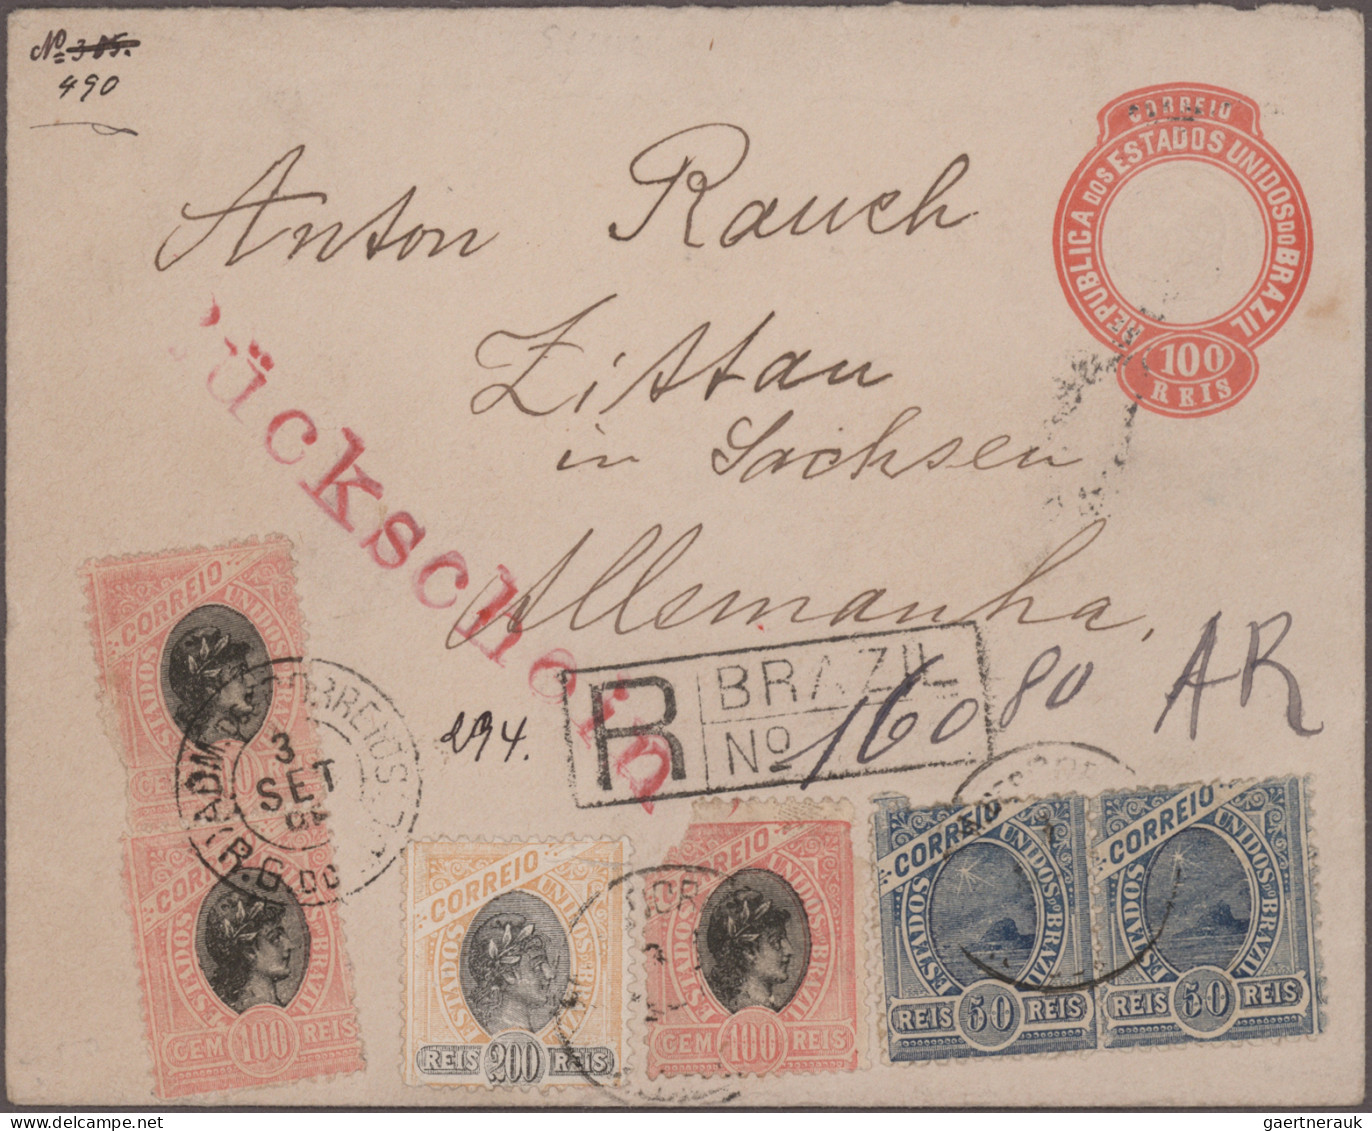 No 385.
490
CORREIO
REPUBLICA DOS ESTADOS UNIDOS DO BRAZIL
100
REIS
Anton Rauch
Zittau
in Sachsen
Allemanha,
Rückschein
R BRAZIL
No 16080
AR
294.
CORREIO
ESTADOS UNIDOS
CEM
ADM CORREIOS
3
SET
(R.G. DO
CORREIO
ESTADOS BRAZIL
CEM 100 REIS
CORREIO
ESTADOS UNIDOS
REIS 200 REIS
CORREIO
ESTADOS UNIDOS BRAZIL
CEM 100 REIS
CORREIO
ESTADOS UNIDOS DO BRAZIL
REIS 50 REIS
CORREIO
ESTADOS UNIDOS DO BRAZIL
REIS 50 REIS
gaertnerauk